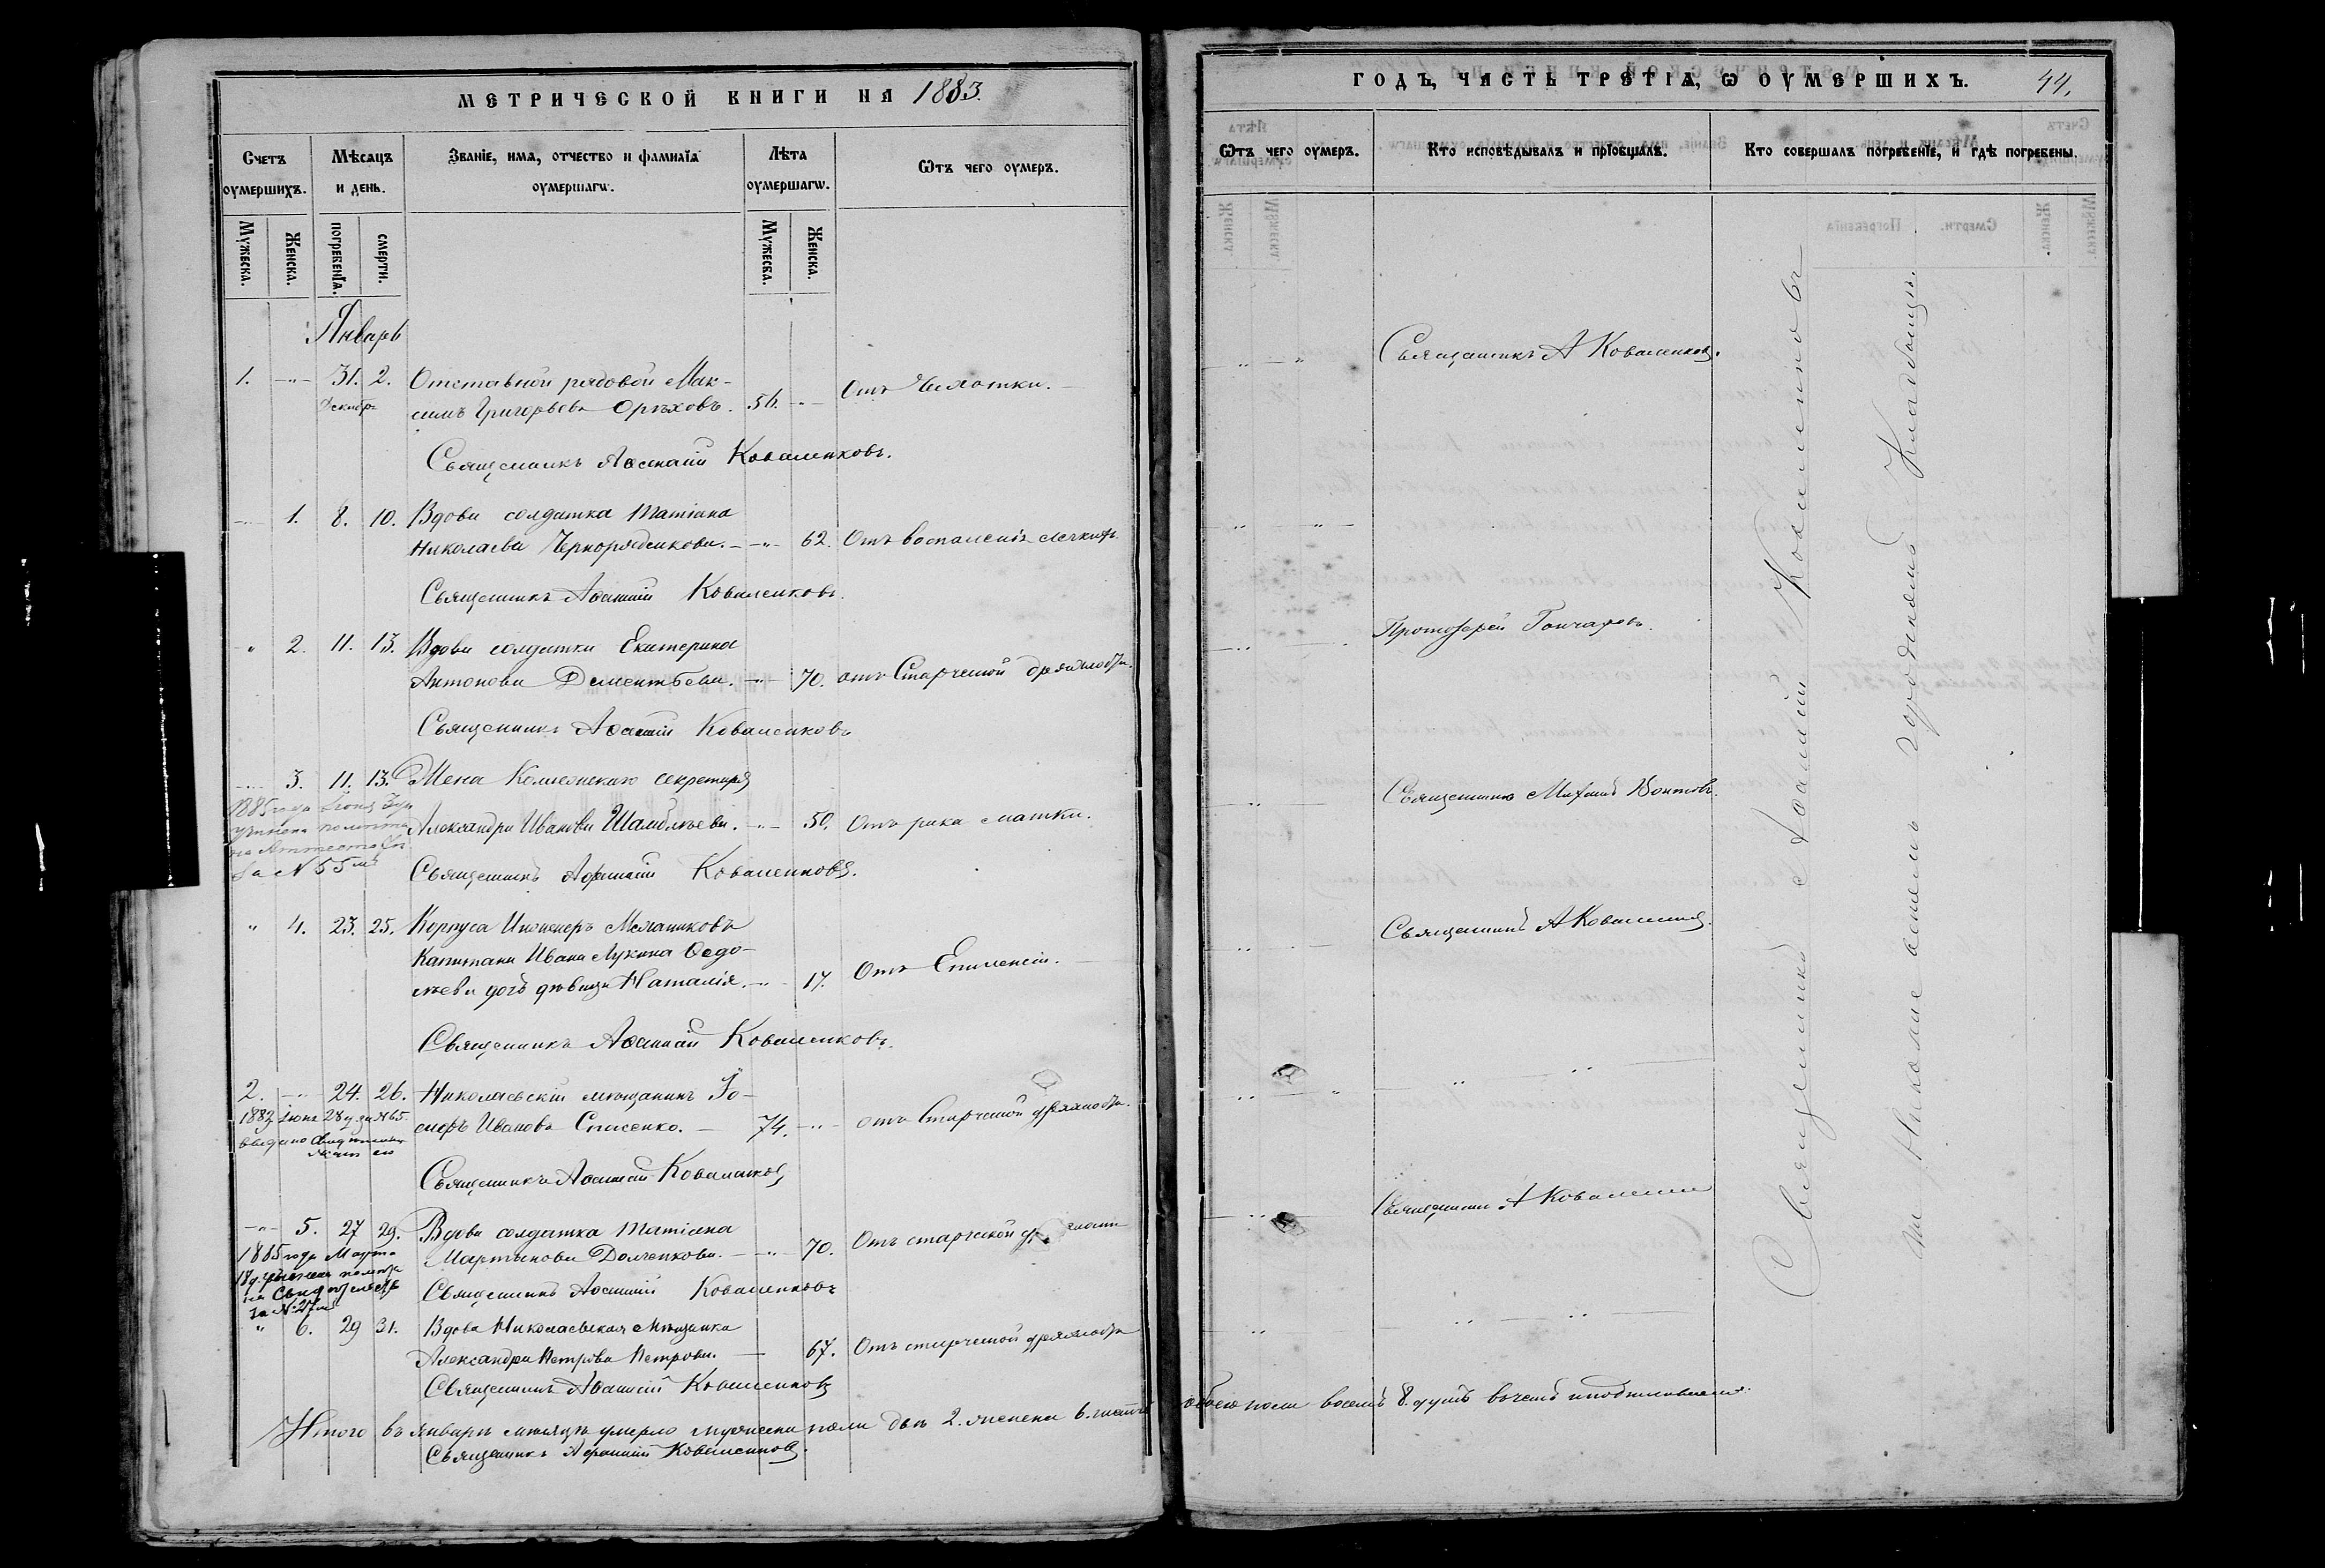 МЕТРИЧЕСКОЙ КНИГИ НА 1883.
Счетъ оумершихъ.
Мѣсяцъ и день.
Званіе, имя, отчество и фамилія оумершагѡ.
Лѣта оумершагѡ.
Ѿтъ чего оумеръ.
Мужеска.
Женска.
погребенїя.
смерти.
Мужеска.
Женска.
Январь
1. -"- 31. 2. Отставной рядовой Мак-
Декабрь симъ Григорьевъ Орѣховъ. 56. -"- Отъ Чахотки.
Священникъ Аѳанасій Коваленковъ.
-"- 1. 8. 10. Вдова солдатка Татіана
Николаева Чернорядникова. -"- 62. Отъ воспаленія легкихъ.
Священникъ Аѳанасій Коваленковъ.
" 2. 11. 13. Вдова солдатка Екатерина
Антонова Дементьева. -"- 70. отъ Старческой дряхлости.
Священникъ Аѳанасій Коваленковъ
-"- 3. 11. 13. Жена Коллежскаго секретаря
1885 года Іюня 3 дня
Александра Иванова Шамблѣева. -"- 50. Отъ рака матки.
за N 55мъ
Священникъ Афанасій Коваленковъ.
" 4. 23. 25. Корпуса Инженеръ Механиковъ
Капитана Ивана Лукина Ѳедо-
ѣева дочь дѣвица Наталія. -"- 17. Отъ Епилепсіи.
Священникъ Аѳанасій Коваленковъ.
2. -"- 24. 26. Николаевскій мѣщанинъ Іо-
1883 Іюня 28 д. за N 65
сифъ Ивановъ Спасенко. 74. -"- отъ Старческой дряхлости.
выдано
Священникъ Аѳанасій Коваленковъ
-"- 5. 27 29. Вдова солдатка Татіана
1885 года Марта
Мартынова Долченкова. -"- 70. Отъ старческой
18 д. учинена помѣтка
на Свидѣтельствѣ
Священникъ Аѳанасій Коваленковъ
за N 27мъ
" 6. 29 31. Вдова Николаевская Мѣщанка
Александра Петрова Петрова. 67. Отъ старческой дряхлости
Священникъ Аѳанасій Коваленковъ
Итого въ январѣ мѣсяцѣ умерло мужеска пола два 2. женска 6. шесть
Священникъ Афанасій Коваленковъ.
ГОДЪ, ЧАСТЬ ТРЕТІѦ, Ѡ ОУМЕРШИХЪ. 44.
Ѿтъ чего оумеръ.
Кто исповѣдывалъ и прїобщалъ.
Кто совершалъ погребенїе, и гдѣ погребены.
Священникъ А Коваленковъ.
Протоіерей Гончаровъ.
Священникъ Михаилъ
Священникъ А Коваленковъ.
Священникъ А Коваленковъ
Священникъ Аѳанасій Коваленковъ
на Николаевскомъ городскомъ Кладбищѣ.
обоего пола восемь 8. душъ